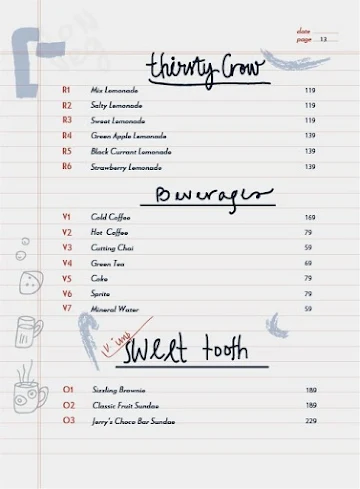 date
page 13
thirsty Crow
R1 Mix Lemonade 119
R2 Salty Lemonade 119
R3 Sweet Lemonade 119
R4 Green Apple Lemonade 139
R5 Black Currant Lemonade 139
R6 Strawberry Lemonade 139
Beverages
V1 Cold Coffee 169
V2 Hot Coffee 79
V3 Cutting Chai 59
V4 Green Tea 69
V5 Coke 79
V6 Sprite 79
V7 Mineral Water 59
V. Imp
sweet tooth
O1 Sizzling Brownie 189
O2 Classic Fruit Sundae 189
O3 Jerry's Choco Bar Sundae 229